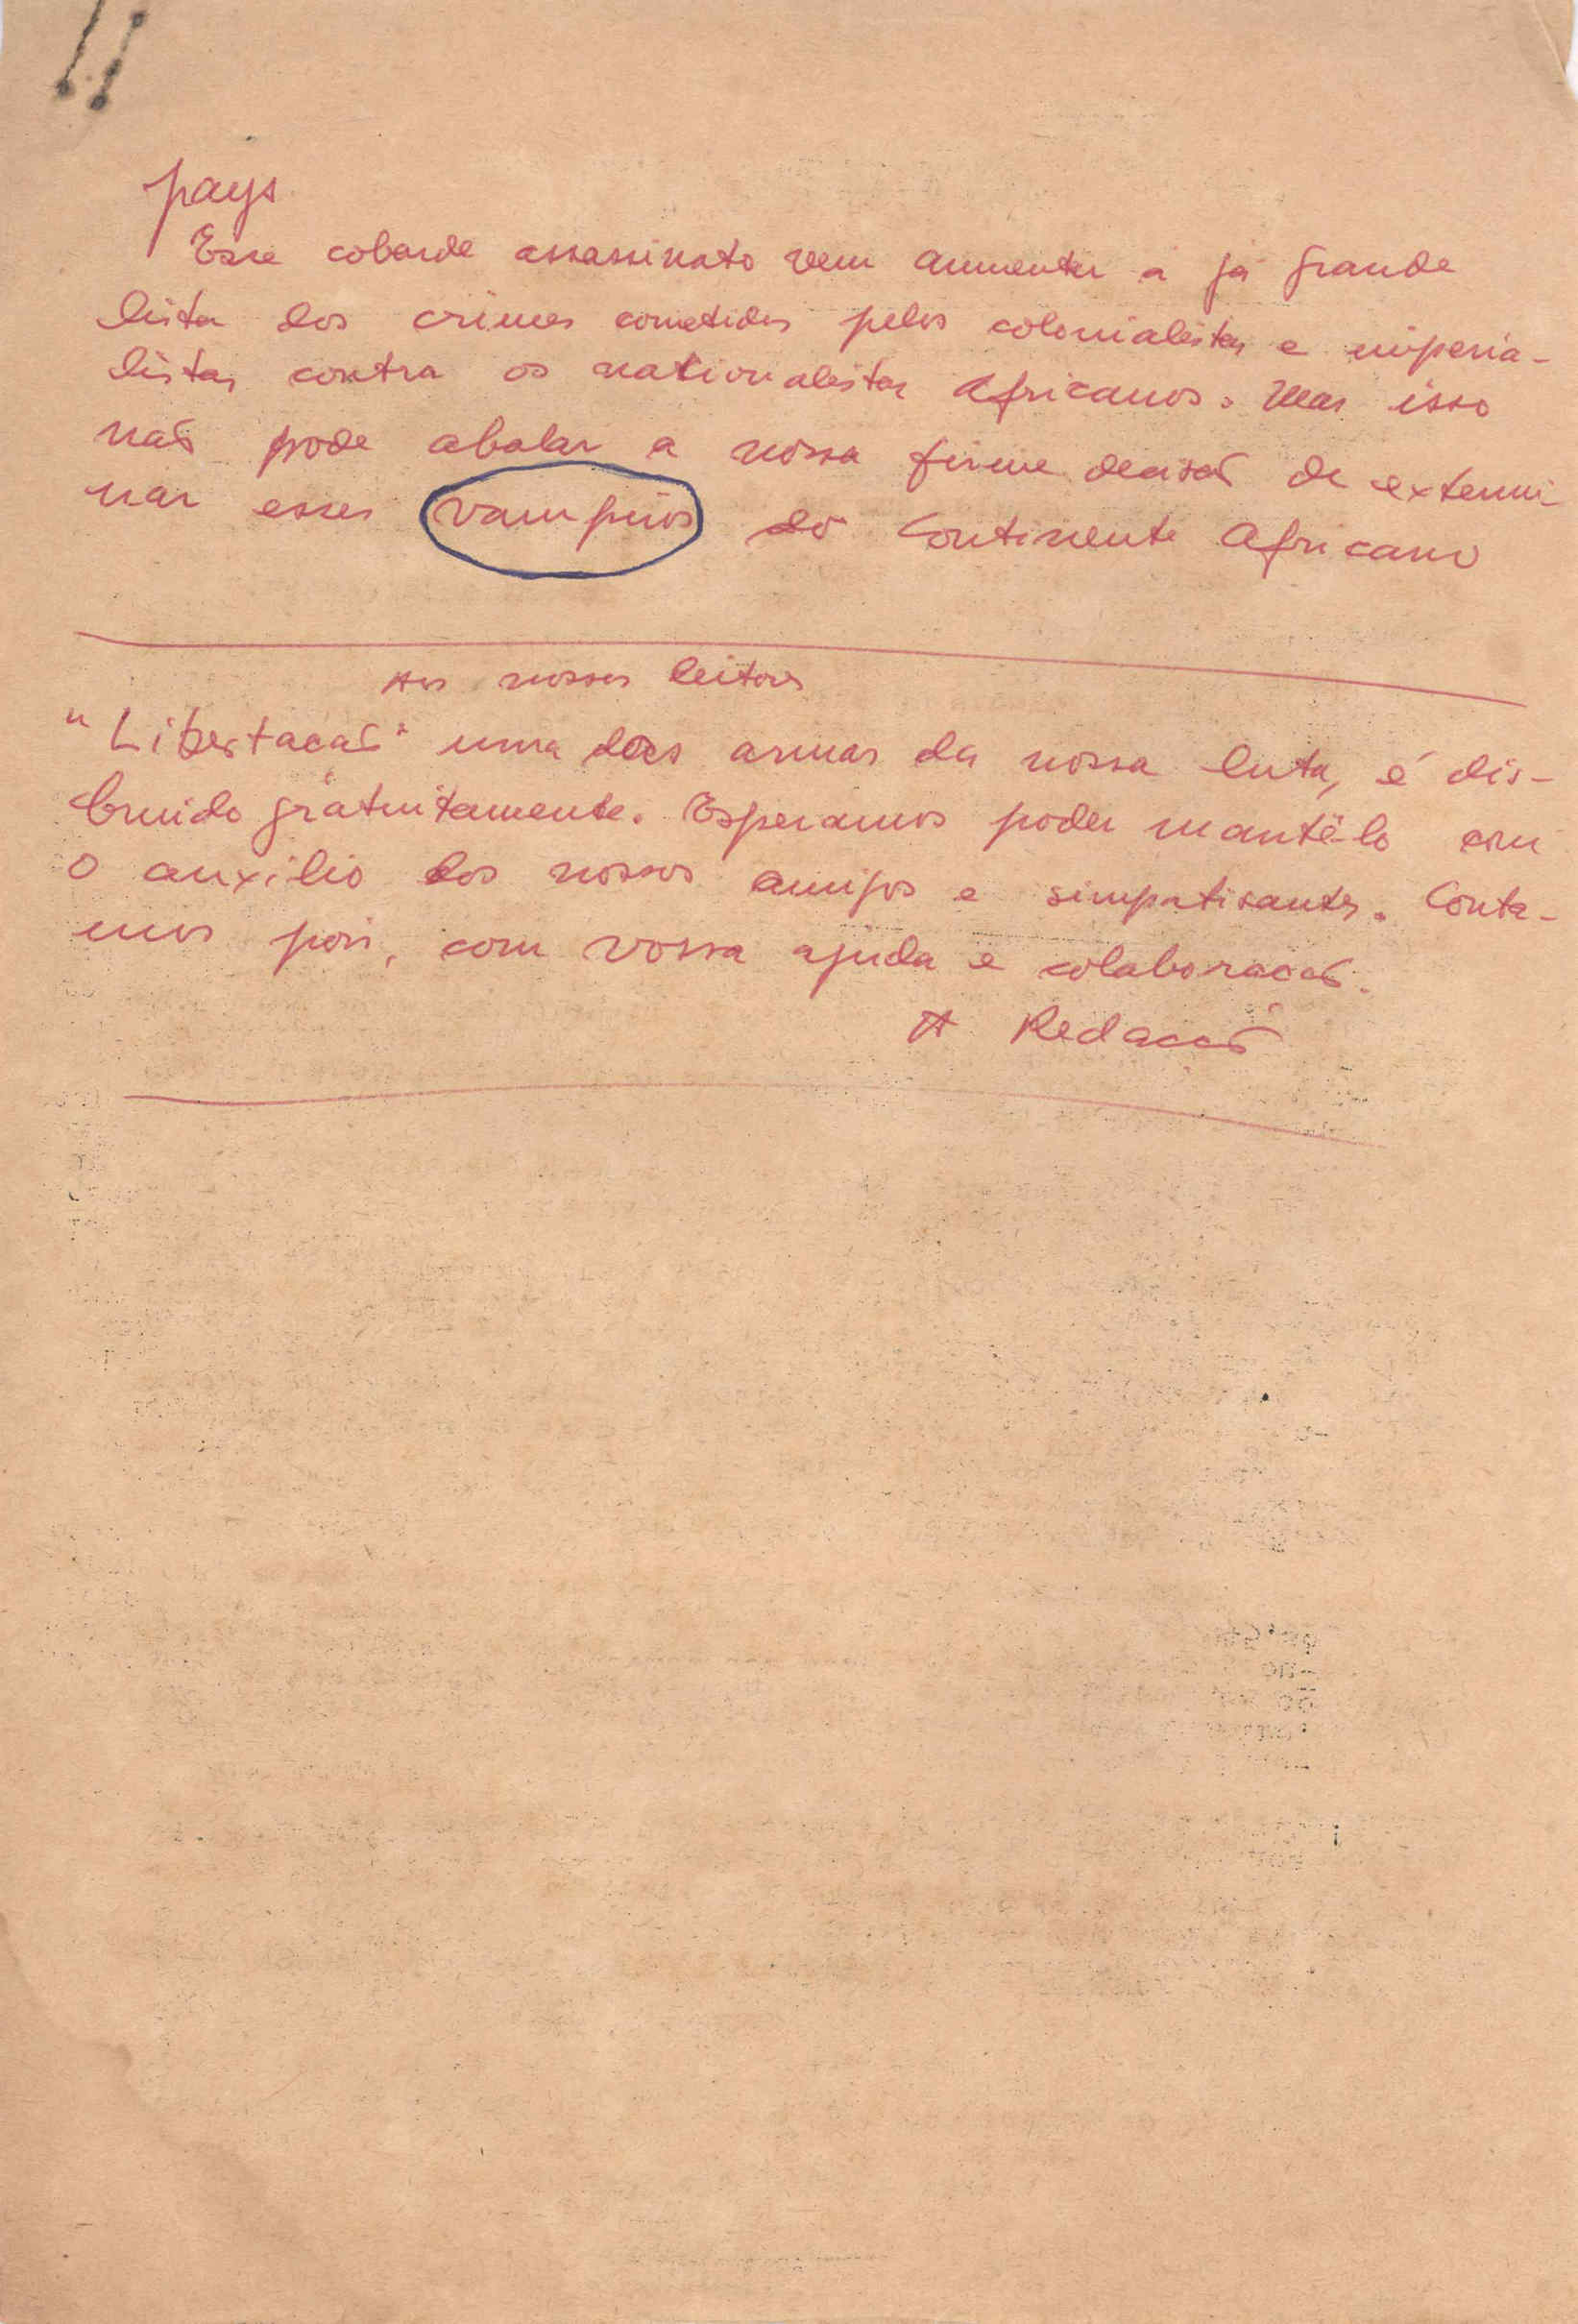 pays
Esse cobarde assassinato vem aumentar a já grande
lista dos crimes cometidos pelos colonialistas e imperia-
listas contra os nationalistas Africanos. Mas isso
não pode abalar a nossa firme decisão de extermi
nar esses vampiros do Continente Africano
Aos nossos leitores
"Libertacão" uma das armas da nossa luta, é dis-
buido gratuitamente. Esperamos poder mantê-lo com
o auxilio dos nossos amigos e simpatisantes. Conta-
mos pois, com vossa ajuda e colaboracão.
A Redaccão